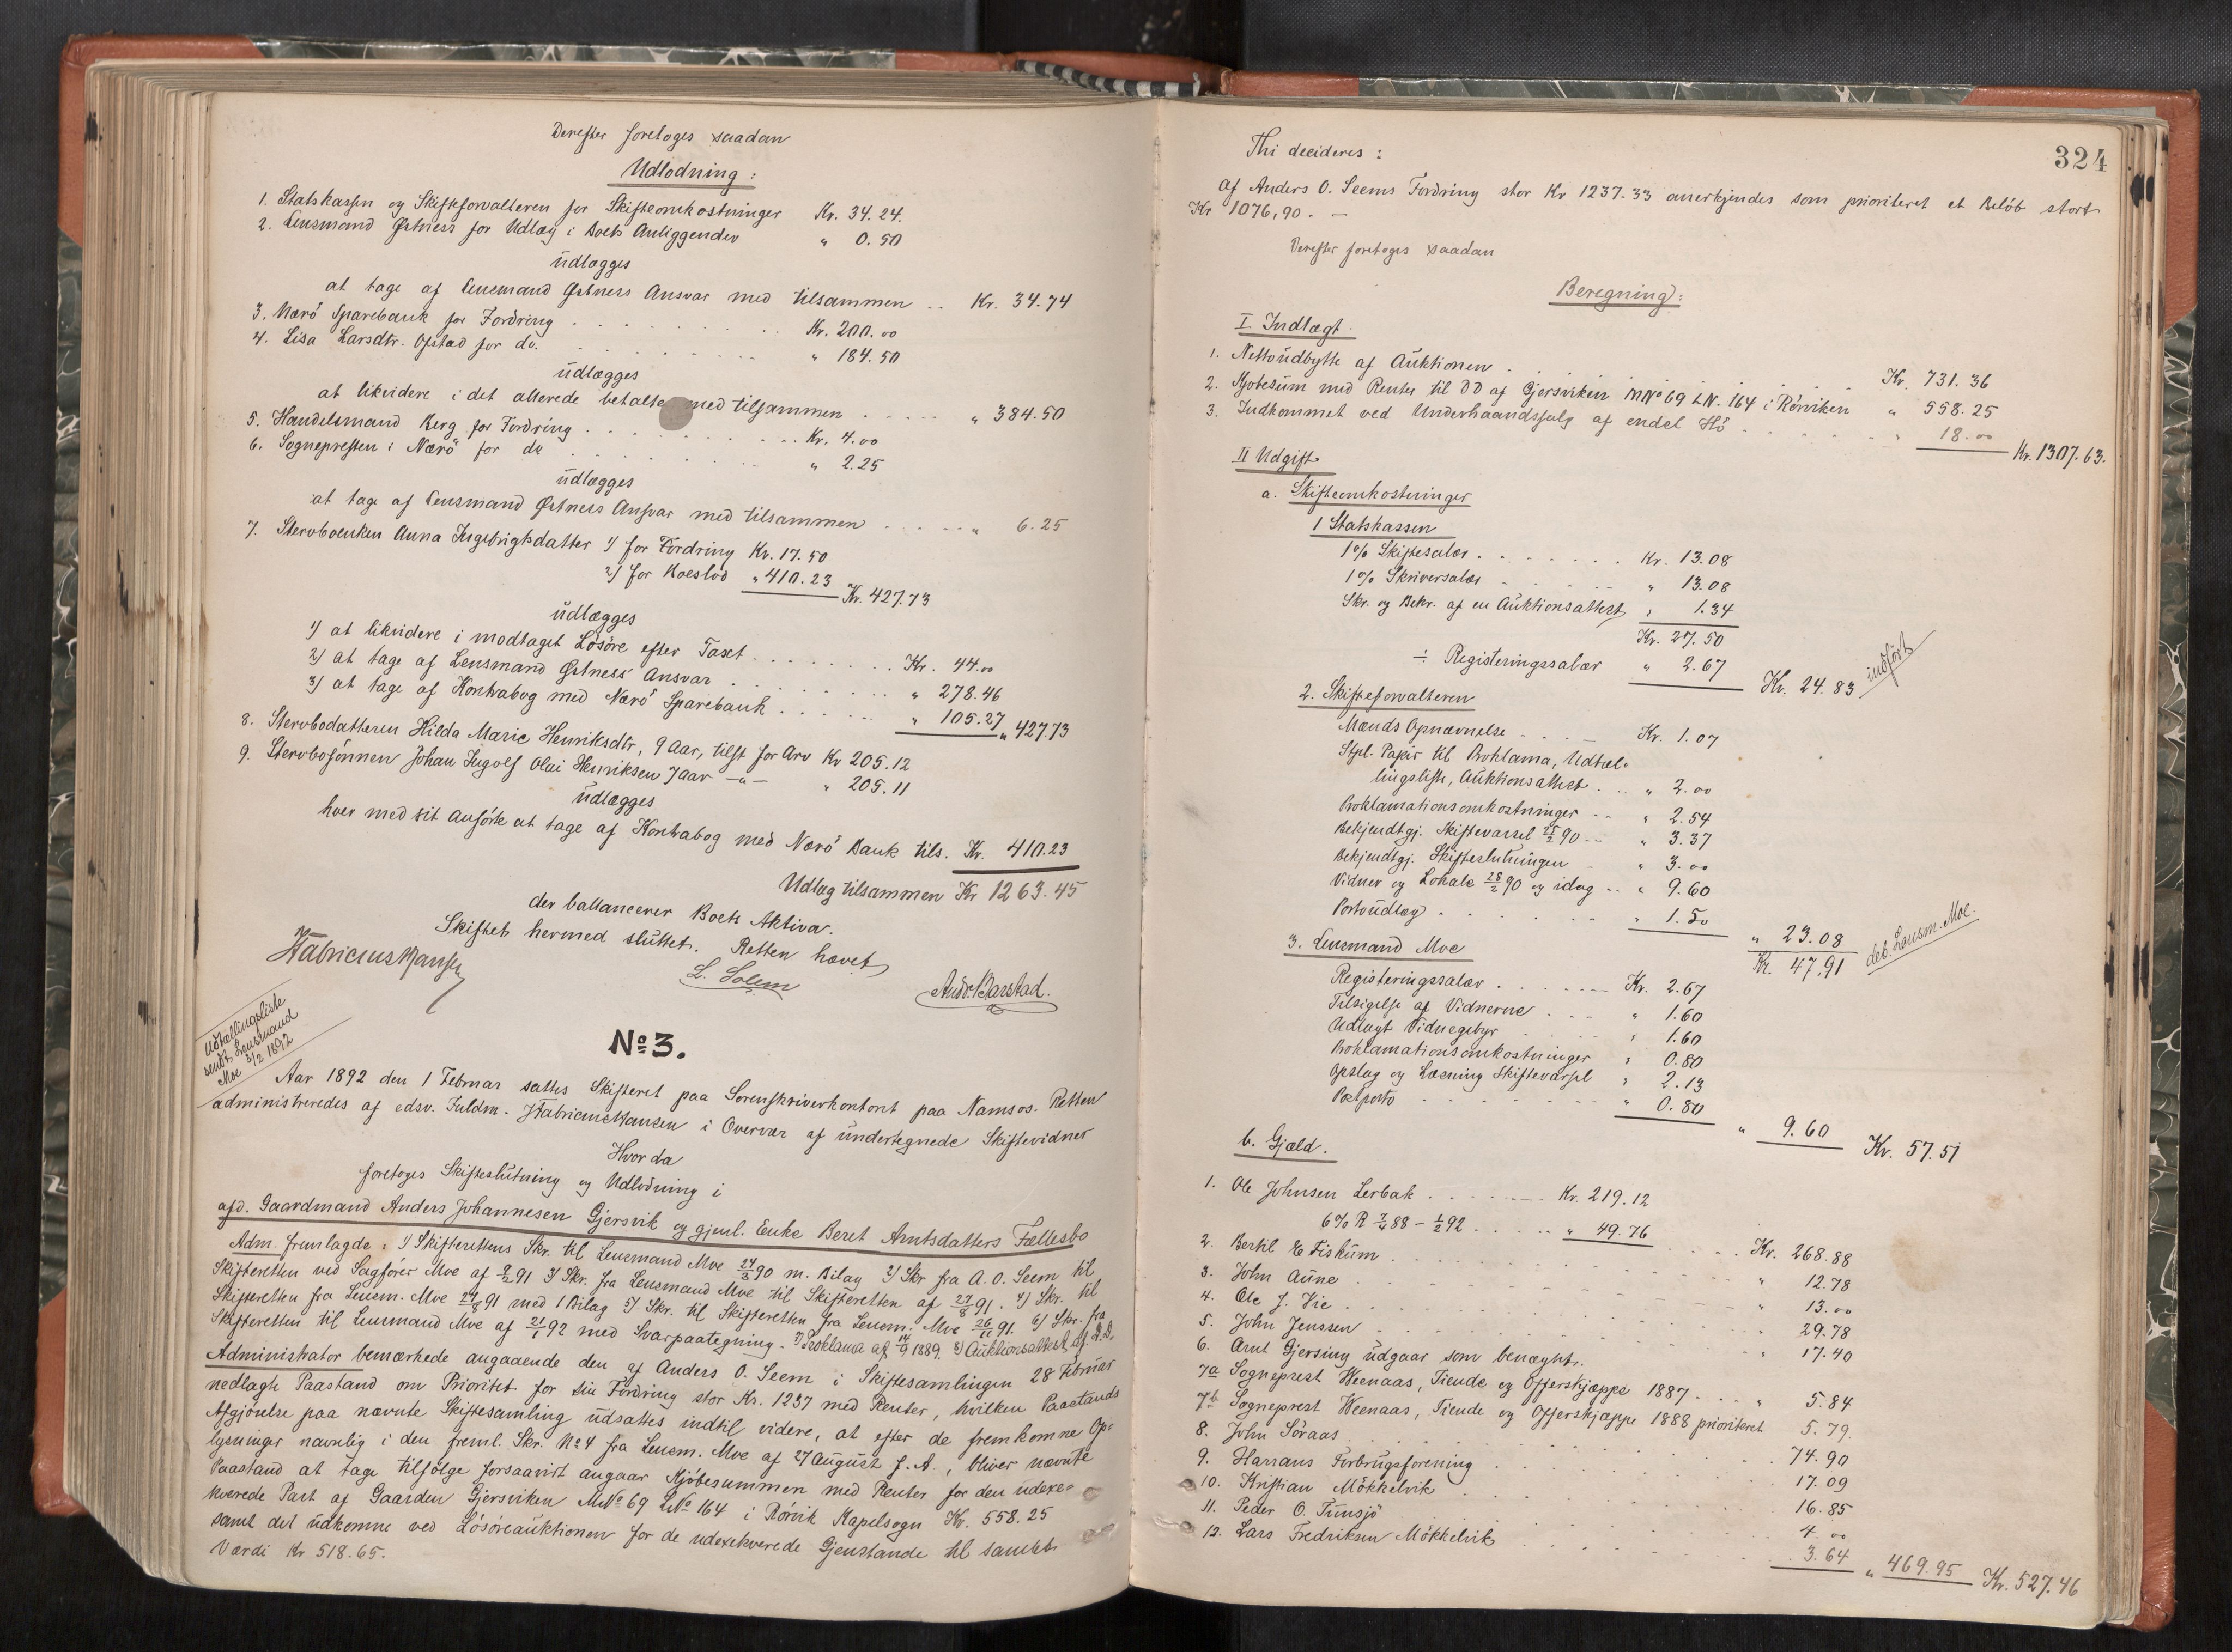 Derefter foretoges saadan
Udlodning:
1. Statskassen og Skifteforvalteren for Skifteomkostninger Kr. 34.24.
2. Lensmand Østness for Udlæg i Boets Anliggender " 0.50
udlægges
at tage af Lensmand Østness Ansvar med tilsammen .. Kr. 34.74
3. Nærö Sparebank for Fordring . . . Kr. 200.00
4. Lisa Larsdtr. Opstad for do. . . . " 184.50
udlægges
at likvidere i det allerede betalte med tilsammen . . . " 384.50
5. Handelsmand Berg for Fordring . . . Kr. 4.00
6. Sognepresten i Nærö for do . . . " 2.25
udlægges
at tage af Lensmand Østness Ansvar med tilsammen . . . " 6.25
7. Stervboenken Anna Ingebrigtsdatter 1) for Fordring Kr. 17.50
2) for Boeslod " 410.23 Kr. 427.73
udlægges
1) at likvidere i modtaget Lösöre efter Taxt . . . Kr. 44.00
2) at tage af Lensmand Østness Ansvar . . . " 278.46
3) at tage af Kontrabog med Nærö Sparebank . . . " 105.27 " 427.73
8. Stervbodatteren Hilda Marie Henriksdtr, 9 Aar, tilst for Arv Kr 205.12
9. Stervbosönnen Johan Ingolf Olai Henriksen 7 aar —"— " 205.11
udlægges
hver med sit anförte at tage af Kontrabog med Nærö Bank tils. Kr. 410.23
Udlæg tilsammen Kr 1263.45
der ballancerer Boets Aktiva.
Skiftet hermed sluttet. Retten hævet
HFabricius Hansen
L. Solem
Andr. Barstad.
No 3.
Udtællingsliste
sendt Lensmand
Moe 3/2 1892
Aar 1892 den 1 Februar sattes Skifteret paa Sorenskriverkontoret paa Namsos. Retten
administreredes af edsv. Fuldm. HFabricius Hansen i Overvær af undertegnede Skiftevidner
Hvor da
foretoges Skifteslutning og Udlodning i
afd. Gaardmand Anders Johannesen Gjersvik og gjenl. Enke Beret Arntsdatters Fællesbo
Adm. fremlagde: 1) Skifterettens Skr. til Lensmand Moe 24/3 90 m. Bilag 2) Skr fra A. O. Seem til
Skifteretten ved Sagförer Moe af 9/2 91 3) Skr. fra Lensmand Moe til Skifteretten af 27/8 91. 4) Skr. til
Skifteretten fra Lensm. Moe 27/8 91 med 1 Bilag 5) Skr. til Skifteretten fra Lensm. Moe 26/11 91. 6) Skr. fra
Skifteretten til Lensmand Moe af 21/1 92 med Svarpaategning. 7) Proklama af 14/9 1889. 8) Auktionsattest af D.D.
Administrator bemærkede angaaende den af Anders O. Seem i Skiftesamlingen 28 Februar
nedlagte Paastand om Prioritet for sin Fordring stor Kr. 1237 med Renter, hvilken Paastands
Afgjörelse paa nævnte Skiftesamling udsattes indtil videre, at efter de fremkomne Op-
lysninger navnlig i den freml. Skr. No 4 fra Lensm. Moe af 27 August f. A., bliver nævnte
Paastand at tage tilfölge forsaavidt angaar Kjöbesummen med Renter for den udexe-
kverede Part af Gaarden Gjersviken MNo 69 LNo 164 i Rörvik Kapelsogn Kr. 558.25
samt det udkomne ved Lösöreauktionen for de udexekverede Gjenstande til samlet
Værdi Kr 518.65.
324
Thi decideres:
Af Anders O. Seems Fordring stor Kr 1237.33 anerkjendes som prioriteret et Belöb stort
Kr 1076,90. —
Derefter foretoges saadan
Beregning:
I Indtægt.
1. Nettoudbytte af Auktionen . . . Kr. 731.36
2. Kjøbesum med Renter til DD af Gjersviken MNo 69 LN. 164 i Rörviken " 558.25
3. Indkommet ved Underhaandssalg af endel Hö . . . " 18.00 Kr. 1307.63.
II Udgift
a. Skifteomkostninger
1 Statskassen
1% Skiftesalær . . . Kr. 13.08
1% Skriversalær . . . " 13.08
Skr. og Bekr. af en Auktionsattest " 1.34
Kr. 27.50
÷ Registeringssalær " 2.67 Kr. 24.83 indfört
2. Skifteforvalteren
Mænds Opnævnelse . . . Kr. 1.07
Stpl. Papir til Proklama, Udtæl-
lingsliste, Auktionsattest . . " 2.00
Proklamationsomkostninger . . " 2.54
Bekjendtgj. Skiftevarsel 25/2 90 . . " 3.37
Bekjendtgj. Skifteslutningen . " 3.00
Vidner og Lokale 28/2 90 og idag . . " 9.60
Portoudlæg . . . " 1.50 " 23.08
Kr. 47,91 deb. Lensm. Moe.
3. Lensmand Moe
Registeringssalær . . . Kr. 2.67
Tilsigelse af Vidnerne . . . " 1.60
Udlagt Vidnegebyr . . . " 1.60
Proklamationsomkostninger " 0.80
Opslag og Læsning Skiftevarsel " 2.13
Postporto . . . " 0.80 " 9.60 Kr. 57.51
b. Gjæld.
1. Ole Johnsen Lerbak . . . Kr. 219.12
6% R 7/4 88 – 1/2 92 . . . " 49.76 . . . Kr. 268.88
2. Bertil E Fiskum . . . " 12.78
3. John Aune . . . " 13.00
4. Ole J. Vie . . . " 29.78
5. John Jenssen . . . " 17.40
6. Arnt Gjersing udgaar som benægtet.
7a Sogneprest Weenaas, Tiende og Offerskjæppe 1887 . . . " 5.84
7b Sogneprest Weenaas, Tiende og Offerskjæppe 1888 prioriteret 5.79.
8. John Söraas . . . 74.90
9. Harrans Forbrugsforening . . . 17.09
10. Kristian Mökkelvik . . . 16.85
11. Peder O. Tunsjö . . . 4.00
12. Lars Fredriksen Mökkelvik . . . 3.64 " 469.95 Kr. 527.46